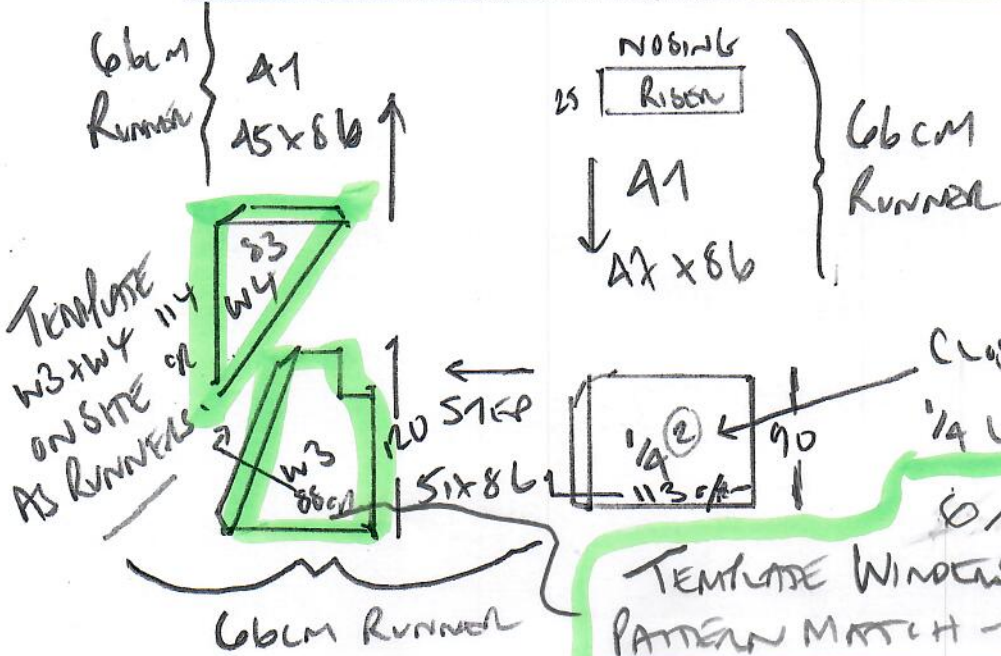 66CM
RUNNER
A1
45 x 86
NOSING
25
RISER
A1
47 x 86
66CM
RUNNER
83
W4
114
O/R
TEMPLATE
W3+W4
ON SITE
AS RUNNERS
W3
88 O/R
120
STEP
51 x 86
1/4
2
113 O/R
90
1/4
TEMPLATE WINDERS
PATTERN MATCH -
66CM RUNNER